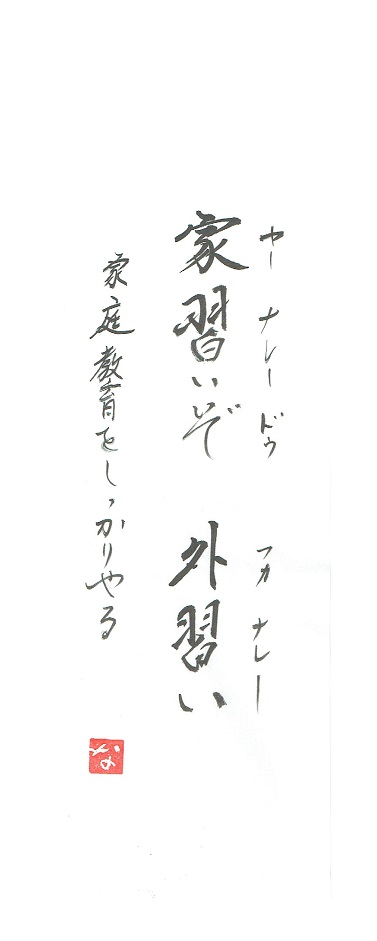 ヤー ナレードゥ フカ ナレー
家習いぞ 外習い
家庭教育をしっかりやる